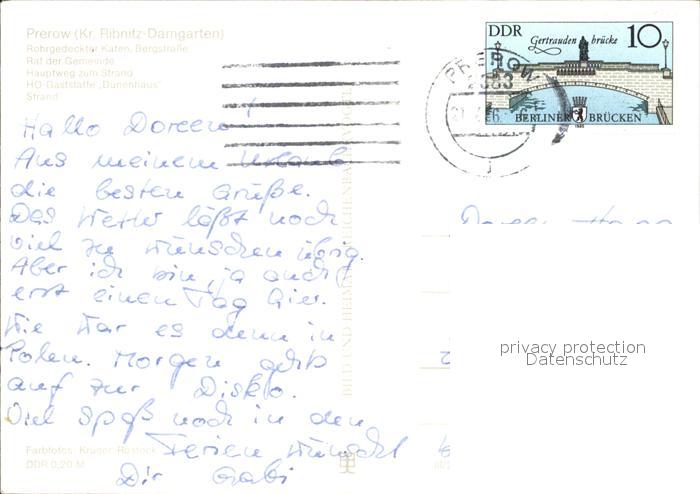 Prerow (Kr. Ribnitz-Damgarten)
Rohrgedeckter Katen, Bergstraße
Rat der Gemeinde
Hauptweg zum Strand
HO-Gaststätte „Dünenhaus"
Strand
DDR
Gertrauden brücke
10
BERLINER BRÜCKEN
PREROW
2383
Hallo Doreen!
Aus meinem Urlaub
die besten Grüße.
Das Wetter läßt noch
viel zu wünschen übrig.
Aber ich bin ja auch
erst einen Tag hier.
Wie war es denn in
Polen. Morgen gehts
auf zur Disko.
Viel Spaß noch in den
Ferien wünscht
Dir Gabi
BILD UND HEIMAT
privacy protection
Datenschutz
Farbfotos: Krüger, Rostock
DDR 0,20 M